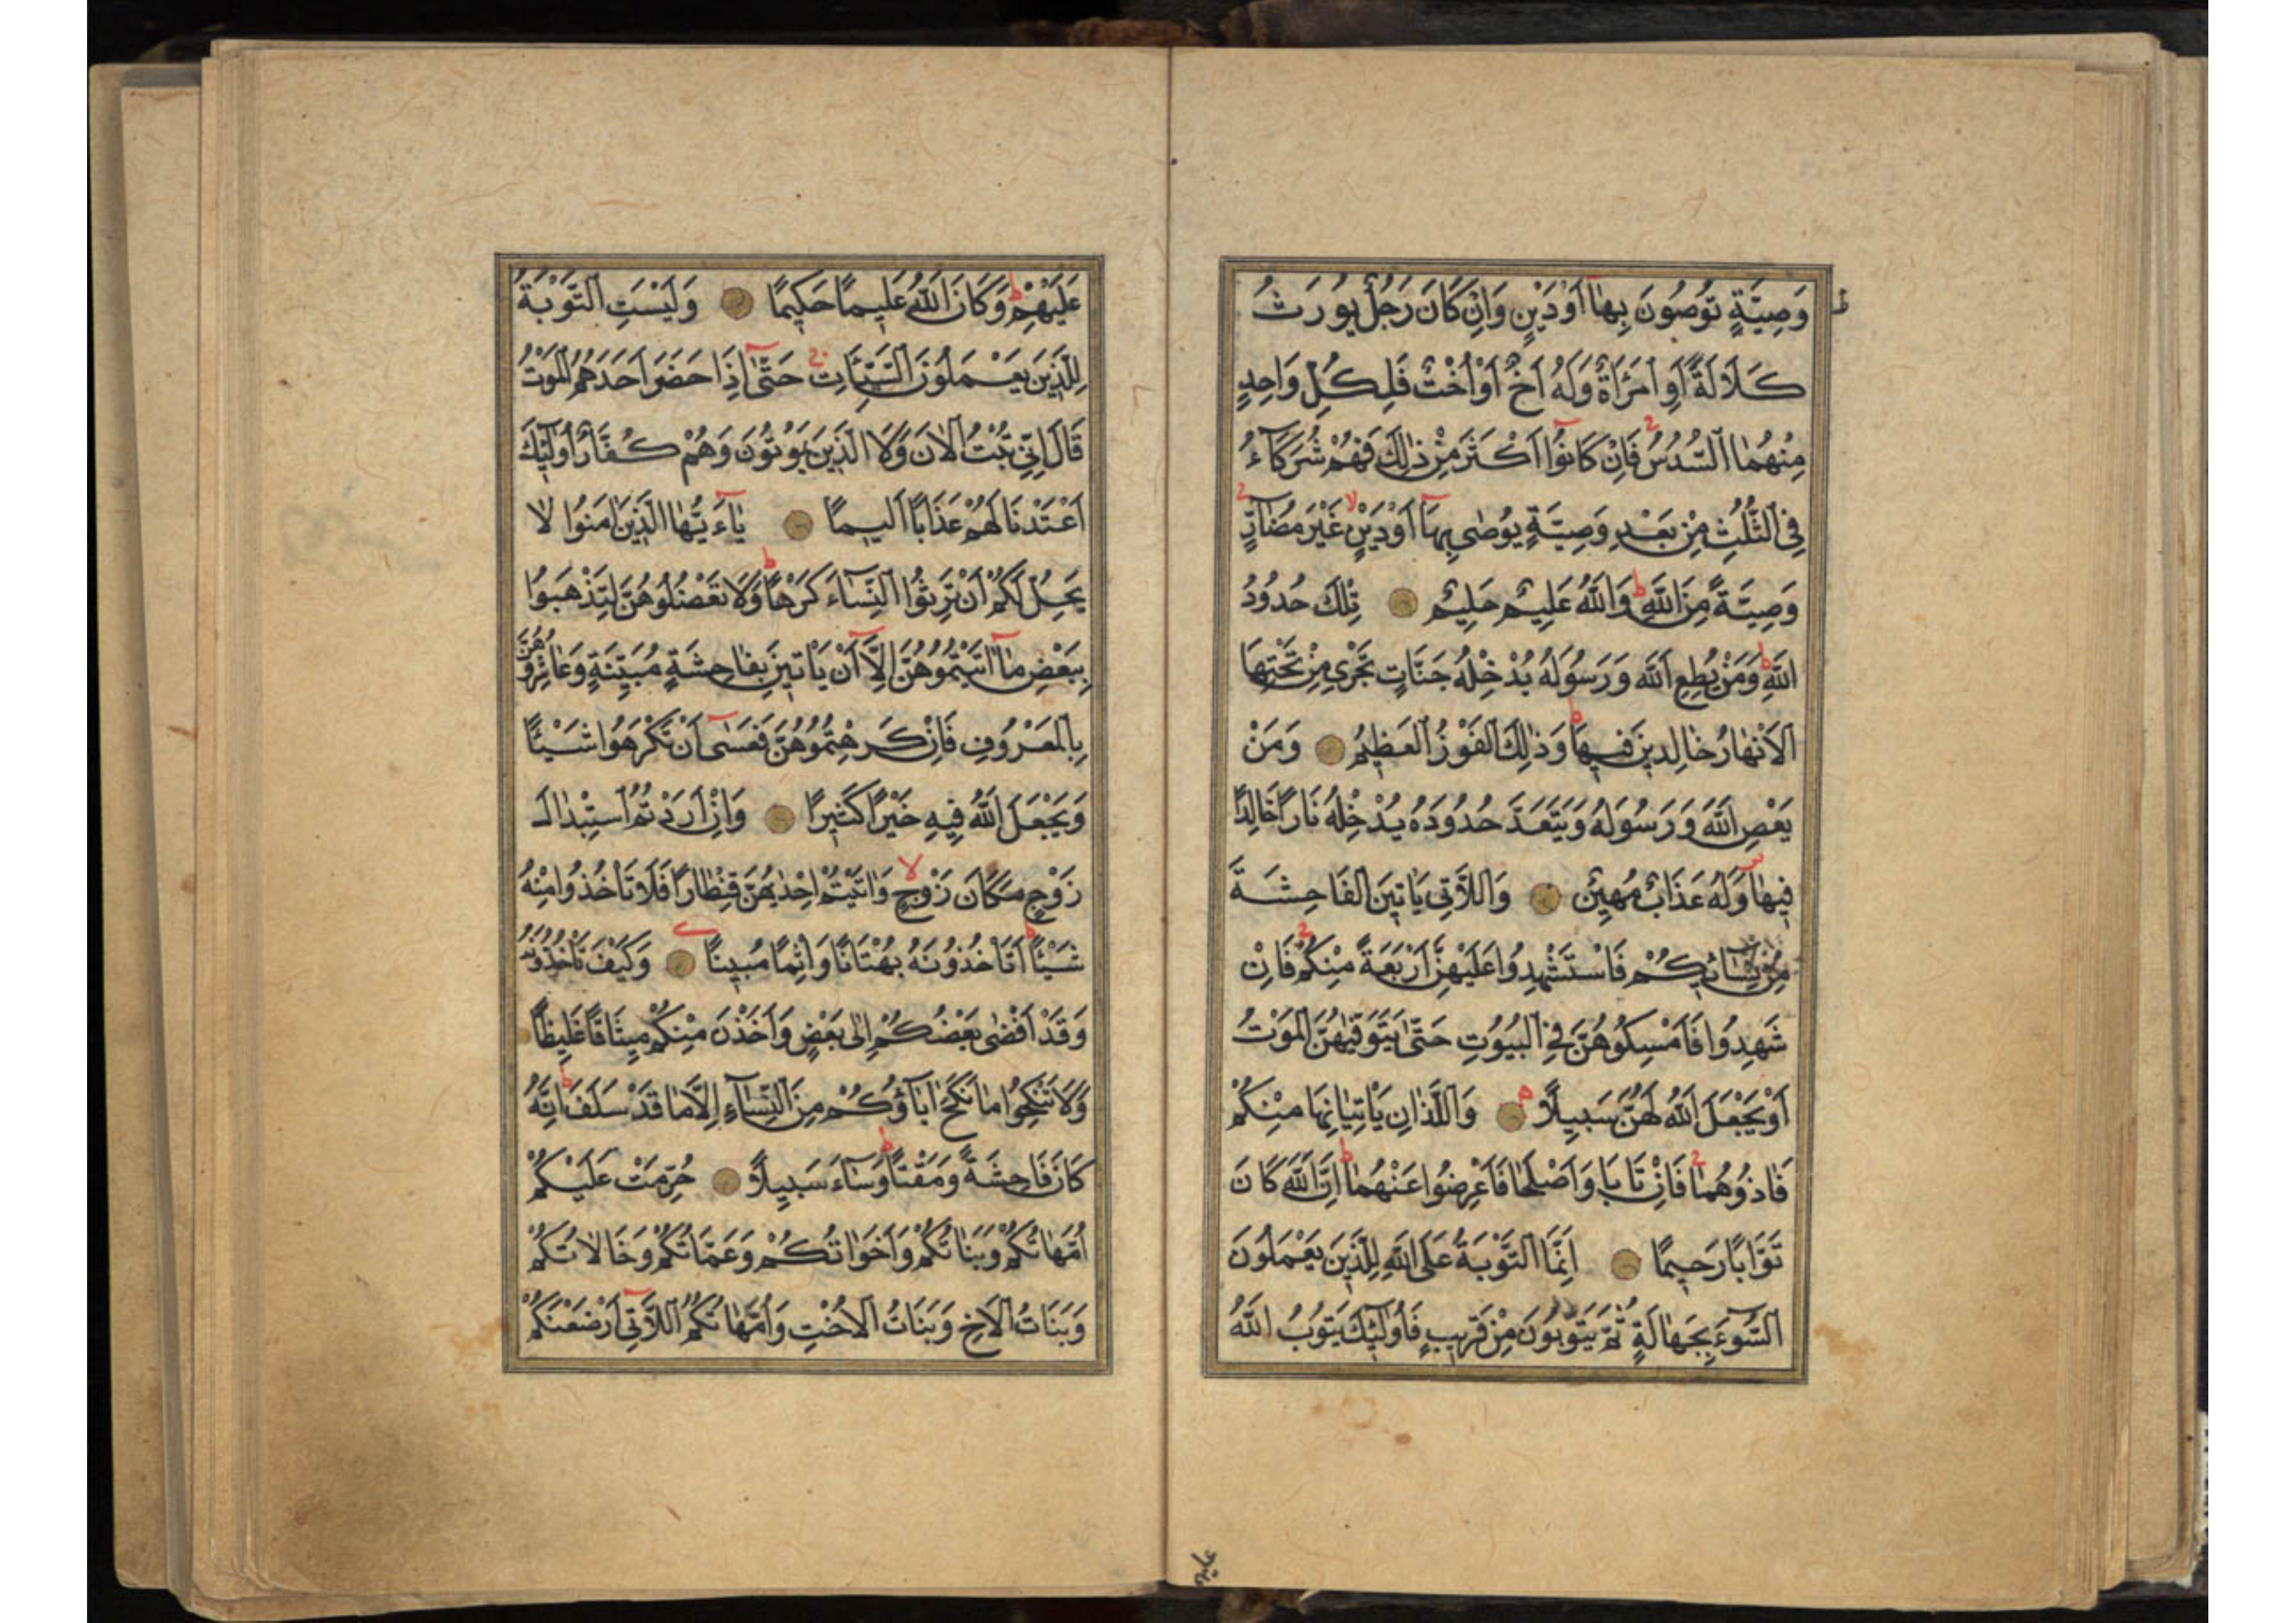 وَصِيَّةٍ تُوصُونَ بِهَا أَوْ دَيْنٍ وَإِنْ كَانَ رَجُلٌ يُورَثُ
كَلَالَةً أَوِ امْرَأَةٌ وَلَهُ أَخٌ أَوْ أُخْتٌ فَلِكُلِّ وَاحِدٍ
مِنْهُمَا السُّدُسُ فَإِنْ كَانُوا أَكْثَرَ مِنْ ذٰلِكَ فَهُمْ شُرَكَاءُ
فِي الثُّلُثِ مِنْ بَعْدِ وَصِيَّةٍ يُوصٰى بِهَا أَوْ دَيْنٍ غَيْرَ مُضَارٍّ
وَصِيَّةً مِنَ اللّٰهِ وَاللّٰهُ عَلِيمٌ حَلِيمٌ تِلْكَ حُدُودُ
اللّٰهِ وَمَنْ يُطِعِ اللّٰهَ وَرَسُولَهُ يُدْخِلْهُ جَنَّاتٍ تَجْرِي مِنْ تَحْتِهَا
الْأَنْهَارُ خَالِدِينَ فِيهَا وَذٰلِكَ الْفَوْزُ الْعَظِيمُ وَمَنْ
يَعْصِ اللّٰهَ وَرَسُولَهُ وَيَتَعَدَّ حُدُودَهُ يُدْخِلْهُ نَارًا خَالِدًا
فِيهَا وَلَهُ عَذَابٌ مُهِينٌ وَاللَّاتِي يَأْتِينَ الْفَاحِشَةَ
مِنْ نِسَائِكُمْ فَاسْتَشْهِدُوا عَلَيْهِنَّ أَرْبَعَةً مِنْكُمْ فَإِنْ
شَهِدُوا فَأَمْسِكُوهُنَّ فِي الْبُيُوتِ حَتّٰى يَتَوَفّٰيهُنَّ الْمَوْتُ
أَوْ يَجْعَلَ اللّٰهُ لَهُنَّ سَبِيلًا وَاللَّذَانِ يَأْتِيَانِهَا مِنْكُمْ
فَاٰذُوهُمَا فَإِنْ تَابَا وَأَصْلَحَا فَأَعْرِضُوا عَنْهُمَا إِنَّ اللّٰهَ كَانَ
تَوَّابًا رَحِيمًا إِنَّمَا التَّوْبَةُ عَلَى اللّٰهِ لِلَّذِينَ يَعْمَلُونَ
السُّوءَ بِجَهَالَةٍ ثُمَّ يَتُوبُونَ مِنْ قَرِيبٍ فَأُولٰئِكَ يَتُوبُ اللّٰهُ
عَلَيْهِمْ وَكَانَ اللّٰهُ عَلِيمًا حَكِيمًا وَلَيْسَتِ التَّوْبَةُ
لِلَّذِينَ يَعْمَلُونَ السَّيِّئَاتِ حَتّٰى إِذَا حَضَرَ أَحَدَهُمُ الْمَوْتُ
قَالَ إِنِّي تُبْتُ الْاٰنَ وَلَا الَّذِينَ يَمُوتُونَ وَهُمْ كُفَّارٌ أُولٰئِكَ
أَعْتَدْنَا لَهُمْ عَذَابًا أَلِيمًا يَاءَيُّهَا الَّذِينَ اٰمَنُوا لَا
يَحِلُّ لَكُمْ أَنْ تَرِثُوا النِّسَاءَ كَرْهًا وَلَا تَعْضُلُوهُنَّ لِتَذْهَبُوا
بِبَعْضِ مَا اٰتَيْتُمُوهُنَّ إِلَّا أَنْ يَأْتِينَ بِفَاحِشَةٍ مُبَيِّنَةٍ وَعَاشِرُوهُنَّ
بِالْمَعْرُوفِ فَإِنْ كَرِهْتُمُوهُنَّ فَعَسٰى أَنْ تَكْرَهُوا شَيْئًا
وَيَجْعَلَ اللّٰهُ فِيهِ خَيْرًا كَثِيرًا وَإِنْ أَرَدْتُمُ اسْتِبْدَالَ
زَوْجٍ مَكَانَ زَوْجٍ وَاٰتَيْتُمْ إِحْدٰيهُنَّ قِنْطَارًا فَلَا تَأْخُذُوا مِنْهُ
شَيْئًا أَتَأْخُذُونَهُ بُهْتَانًا وَإِثْمًا مُبِينًا وَكَيْفَ تَأْخُذُونَهُ
وَقَدْ أَفْضٰى بَعْضُكُمْ إِلٰى بَعْضٍ وَأَخَذْنَ مِنْكُمْ مِيثَاقًا غَلِيظًا
وَلَا تَنْكِحُوا مَا نَكَحَ اٰبَاؤُكُمْ مِنَ النِّسَاءِ إِلَّا مَا قَدْ سَلَفَ إِنَّهُ
كَانَ فَاحِشَةً وَمَقْتًا وَسَاءَ سَبِيلًا حُرِّمَتْ عَلَيْكُمْ
أُمَّهَاتُكُمْ وَبَنَاتُكُمْ وَأَخَوَاتُكُمْ وَعَمَّاتُكُمْ وَخَالَاتُكُمْ
وَبَنَاتُ الْأَخِ وَبَنَاتُ الْأُخْتِ وَأُمَّهَاتُكُمُ اللَّاتِي أَرْضَعْنَكُمْ